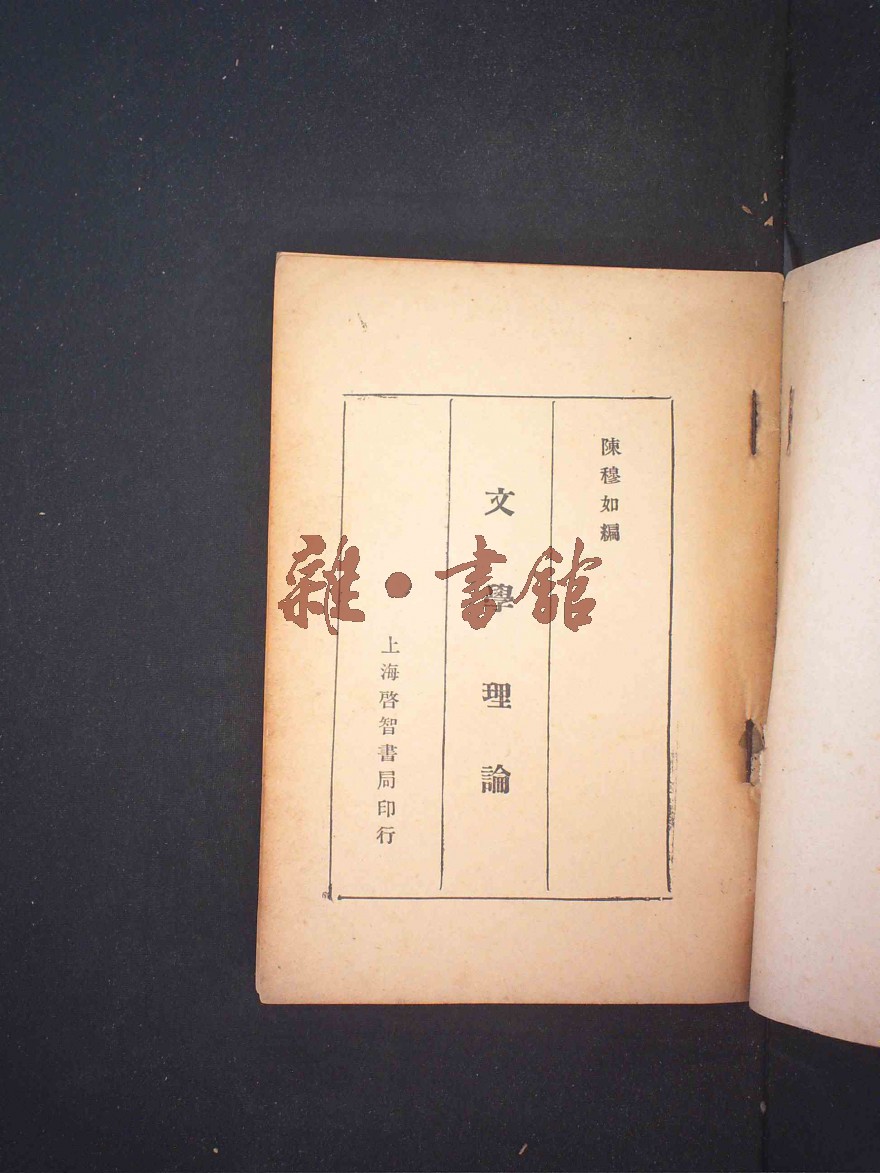 陳穆如編
文學理論
上海啓智書局印行
雜•書館